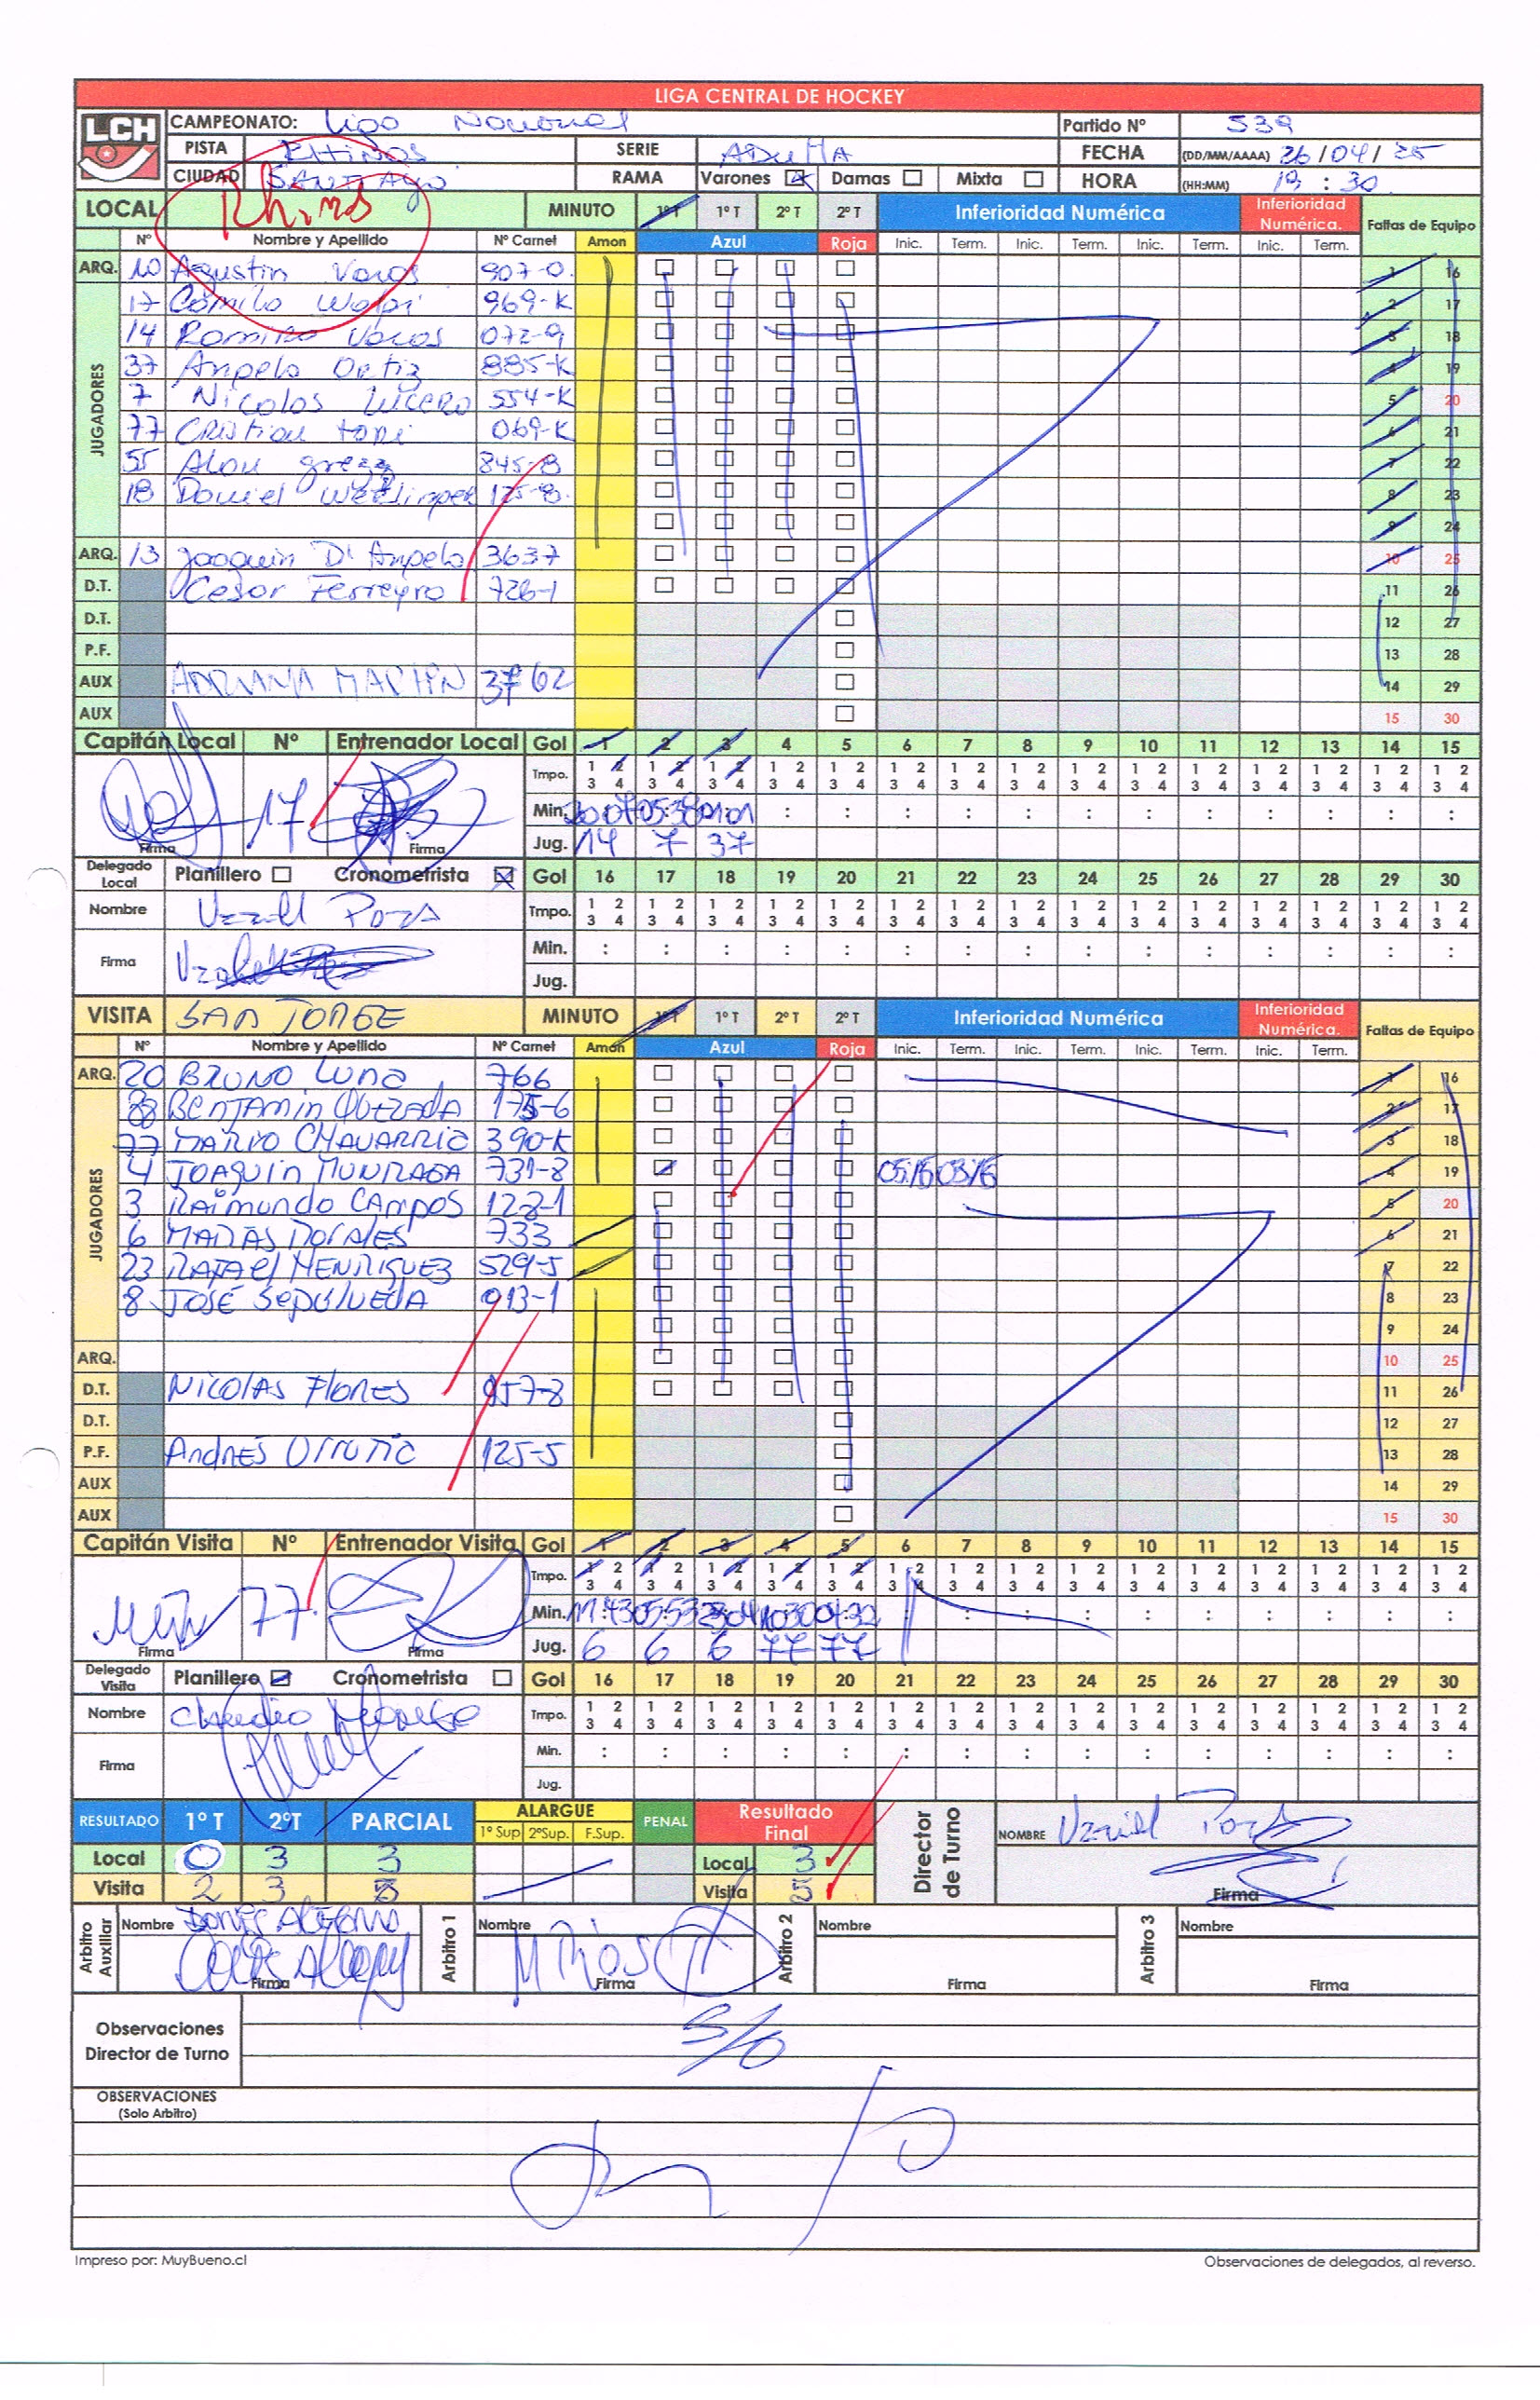 LIGA CENTRAL DE HOCKEY
LCH
CAMPEONATO: Liga Nacional Partido Nº 539
PISTA RHINOS SERIE ADULTA FECHA (DD/MM/AAAA) 26/04/25
CIUDAD SANTIAGO RAMA Varones Damas Mixta HORA (HH:MM) 19:30
LOCAL Rhinos MINUTO 1º T 1º T 2º T 2º T Inferioridad Numérica Inferioridad Numérica. Faltas de Equipo
Nº Nombre y Apellido Nº Carnet Amon Azul Roja Inic. Term. Inic. Term. Inic. Term. Inic. Term.
ARQ. 10 Agustin Vacas 907-0 1 16
JUGADORES
17 Camilo Wolpi 969-K 2 17
14 Ramiro Vacas 072-9 3 18
37 Angelo Ortiz 885-K 4 19
7 Nicolas Lucero 554-K 5 20
77 Cristian 069-K 6 21
55 Alan 845-8 7 22
18 Daniel 125-8 8 23
9 24
ARQ. 13 Joaquin D'Angelo 3637 10 25
D.T. Cesar Ferreyro 726-1 11 26
D.T. 12 27
P.F. 13 28
AUX ADRIANA MARTIN 3762 14 29
AUX 15 30
Capitán Local Nº Entrenador Local Gol 1 2 3 4 5 6 7 8 9 10 11 12 13 14 15
Tmpo. 1 2 1 2 1 2 1 2 1 2 1 2 1 2 1 2 1 2 1 2 1 2 1 2 1 2 1 2 1 2
3 4 3 4 3 4 3 4 3 4 3 4 3 4 3 4 3 4 3 4 3 4 3 4 3 4 3 4 3 4
17 Min. 05:38 01:01 : : : : : : : : : : : :
Firma Firma Jug. 14 7 37
Delegado Local Planillero Cronometrista Gol 16 17 18 19 20 21 22 23 24 25 26 27 28 29 30
Nombre Uzziell Poza Tmpo. 1 2 1 2 1 2 1 2 1 2 1 2 1 2 1 2 1 2 1 2 1 2 1 2 1 2 1 2 1 2
3 4 3 4 3 4 3 4 3 4 3 4 3 4 3 4 3 4 3 4 3 4 3 4 3 4 3 4 3 4
Firma Min. : : : : : : : : : : : : : : :
Jug.
VISITA SAN JORGE MINUTO 1º T 1º T 2º T 2º T Inferioridad Numérica Inferioridad Numérica. Faltas de Equipo
Nº Nombre y Apellido Nº Carnet Amon Azul Roja Inic. Term. Inic. Term. Inic. Term. Inic. Term.
ARQ. 20 BRUNO LUNA 766 1 16
JUGADORES
88 BENJAMIN QUEZADA 175-6 2 17
77 MARIO CHAVARRIA 390-K 3 18
4 JOAQUIN MUNIZAGA 731-8 05:16 03:16 4 19
3 RAIMUNDO CAMPOS 122-1 5 20
6 MATIAS MORALES 733 6 21
23 RAFAEL HENRIQUEZ 529-5 7 22
8 JOSÉ SEPULVEDA 013-1 8 23
9 24
ARQ. 10 25
D.T. NICOLAS FLORES 957-8 11 26
D.T. 12 27
P.F. ANDRÉS URRUTIA 125-5 13 28
AUX 14 29
AUX 15 30
Capitán Visita Nº Entrenador Visita Gol 1 2 3 4 5 6 7 8 9 10 11 12 13 14 15
Tmpo. 1 2 1 2 1 2 1 2 1 2 1 2 1 2 1 2 1 2 1 2 1 2 1 2 1 2 1 2 1 2
3 4 3 4 3 4 3 4 3 4 3 4 3 4 3 4 3 4 3 4 3 4 3 4 3 4 3 4 3 4
77 Min. 11:43 05:53 23:04 10:30 04:32 : : : : : : : : : :
Firma Firma Jug. 6 6 6 77 77
Delegado Visita Planillero Cronometrista Gol 16 17 18 19 20 21 22 23 24 25 26 27 28 29 30
Nombre Claudio Tmpo. 1 2 1 2 1 2 1 2 1 2 1 2 1 2 1 2 1 2 1 2 1 2 1 2 1 2 1 2 1 2
3 4 3 4 3 4 3 4 3 4 3 4 3 4 3 4 3 4 3 4 3 4 3 4 3 4 3 4 3 4
Firma Min. : : : : : : : : : : : : : : :
Jug.
RESULTADO 1º T 2ºT PARCIAL ALARGUE 1º Sup 2ºSup. F.Sup. PENAL Resultado Final Director de Turno NOMBRE Uzziell Poza
Local 0 3 3 Local 3
Visita 2 3 5 Visita 5 Firma
Arbitro Auxiliar Nombre Arbitro 1 Nombre Arbitro 2 Nombre Arbitro 3 Nombre
Firma M Rios Firma Firma Firma
Observaciones Director de Turno S/O
OBSERVACIONES
(Solo Arbitro)
Impreso por: MuyBueno.cl Observaciones de delegados, al reverso.